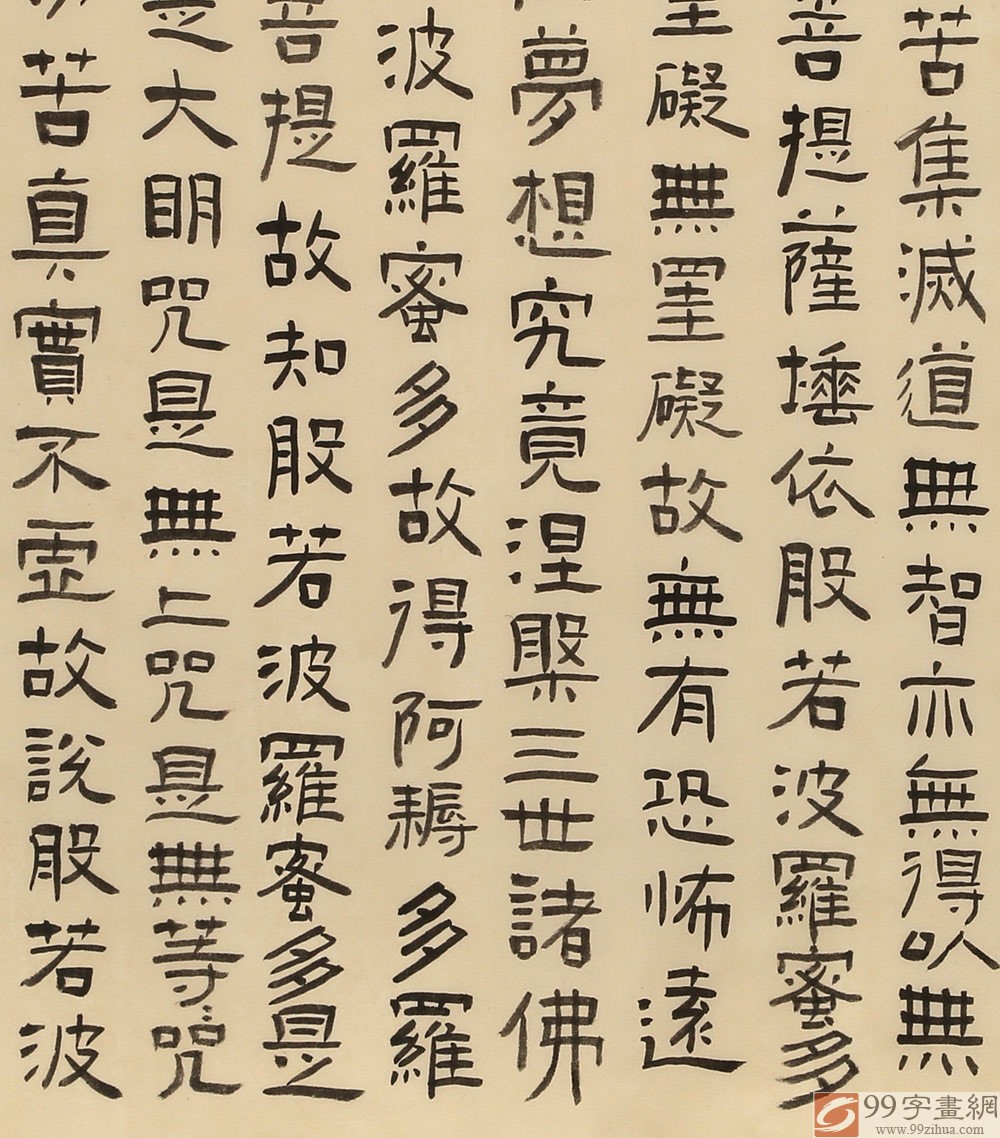 苦集滅道無智亦無得以無
菩提薩埵依般若波羅蜜多
罣礙無罣礙故無有恐怖遠
夢想究竟涅槃三世諸佛
波羅蜜多故得阿耨多羅
菩提故知般若波羅蜜多是
是大明咒是無上咒是無等〻咒
苦真實不虛故說般若波
99字畫網
www.99zihua.com